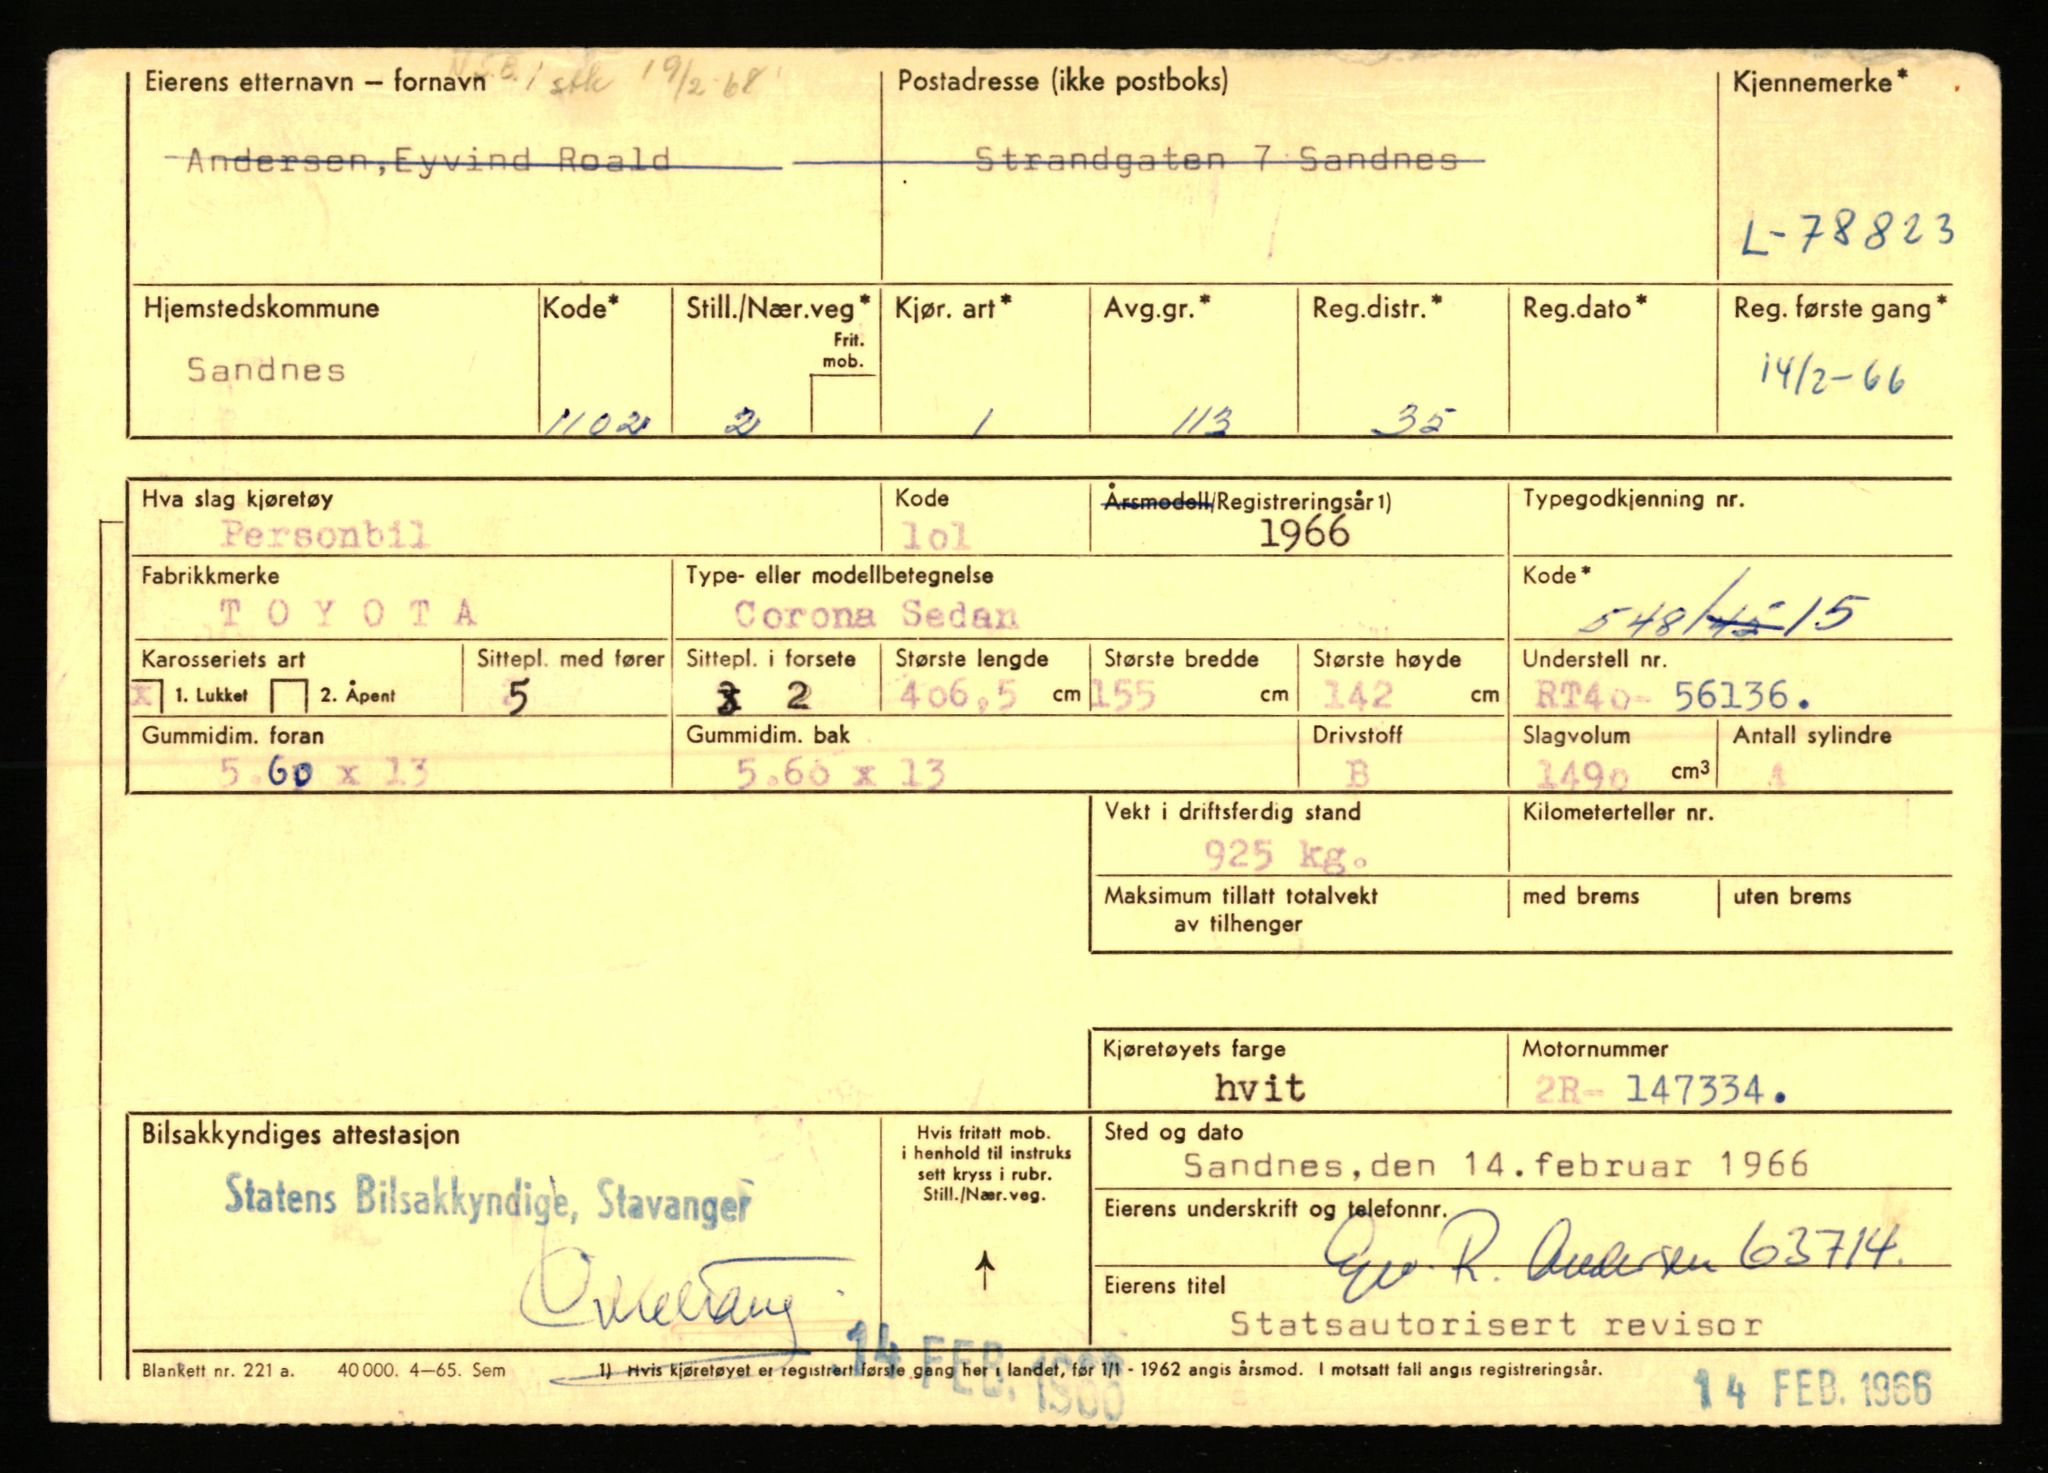 N.S.B. i stk 19/2-68
Eierens etternavn – fornavn Postadresse (ikke postboks) Kjennemerke*
Andersen,Eyvind Roald Strandgaten 7 Sandnes
L-78823
Hjemstedskommune Kode* Still./Nær.veg* Kjør. art* Avg.gr.* Reg.distr.* Reg.dato* Reg. første gang*
Frit.
mob.
Sandnes 14/2-66
1102 2 1 113 35
Hva slag kjøretøy Kode Årsmodell/Registreringsår 1) Typegodkjenning nr.
Personbil 1o1 1966
Fabrikkmerke Type- eller modellbetegnelse Kode*
T O Y O T A Corona Sedan 548/45 15
Karosseriets art Sittepl. med fører Sittepl. i forsete Største lengde Største bredde Største høyde Understell nr.
x 1. Lukket 2. Åpent 5 3 2 4o6,5 cm 155 cm 142 cm RT4o- 56136.
Gummidim. foran Gummidim. bak Drivstoff Slagvolum Antall sylindre
5.60 x 13 5.60 x 13 B 149o cm3 4
Vekt i driftsferdig stand Kilometerteller nr.
925 kg.
Maksimum tillatt totalvekt med brems uten brems
av tilhenger
Kjøretøyets farge Motornummer
hvit 2R- 147334.
Bilsakkyndiges attestasjon Hvis fritatt mob. Sted og dato
i henhold til instruks
sett kryss i rubr.
Still./Nær.veg.
Sandnes,den 14.februar 1966
Statens Bilsakkyndige, Stavanger
Eierens underskrift og telefonnr.
Eyv. R. Andersen 63714.
Eierens titel
Statsautorisert revisor
14 FEB. 1966
Blankett nr. 221 a. 40 000. 4–65. Sem 1) Hvis kjøretøyet er registrert første gang her i landet, før 1/1 - 1962 angis årsmod. I motsatt fall angis registreringsår.
14 FEB. 1966